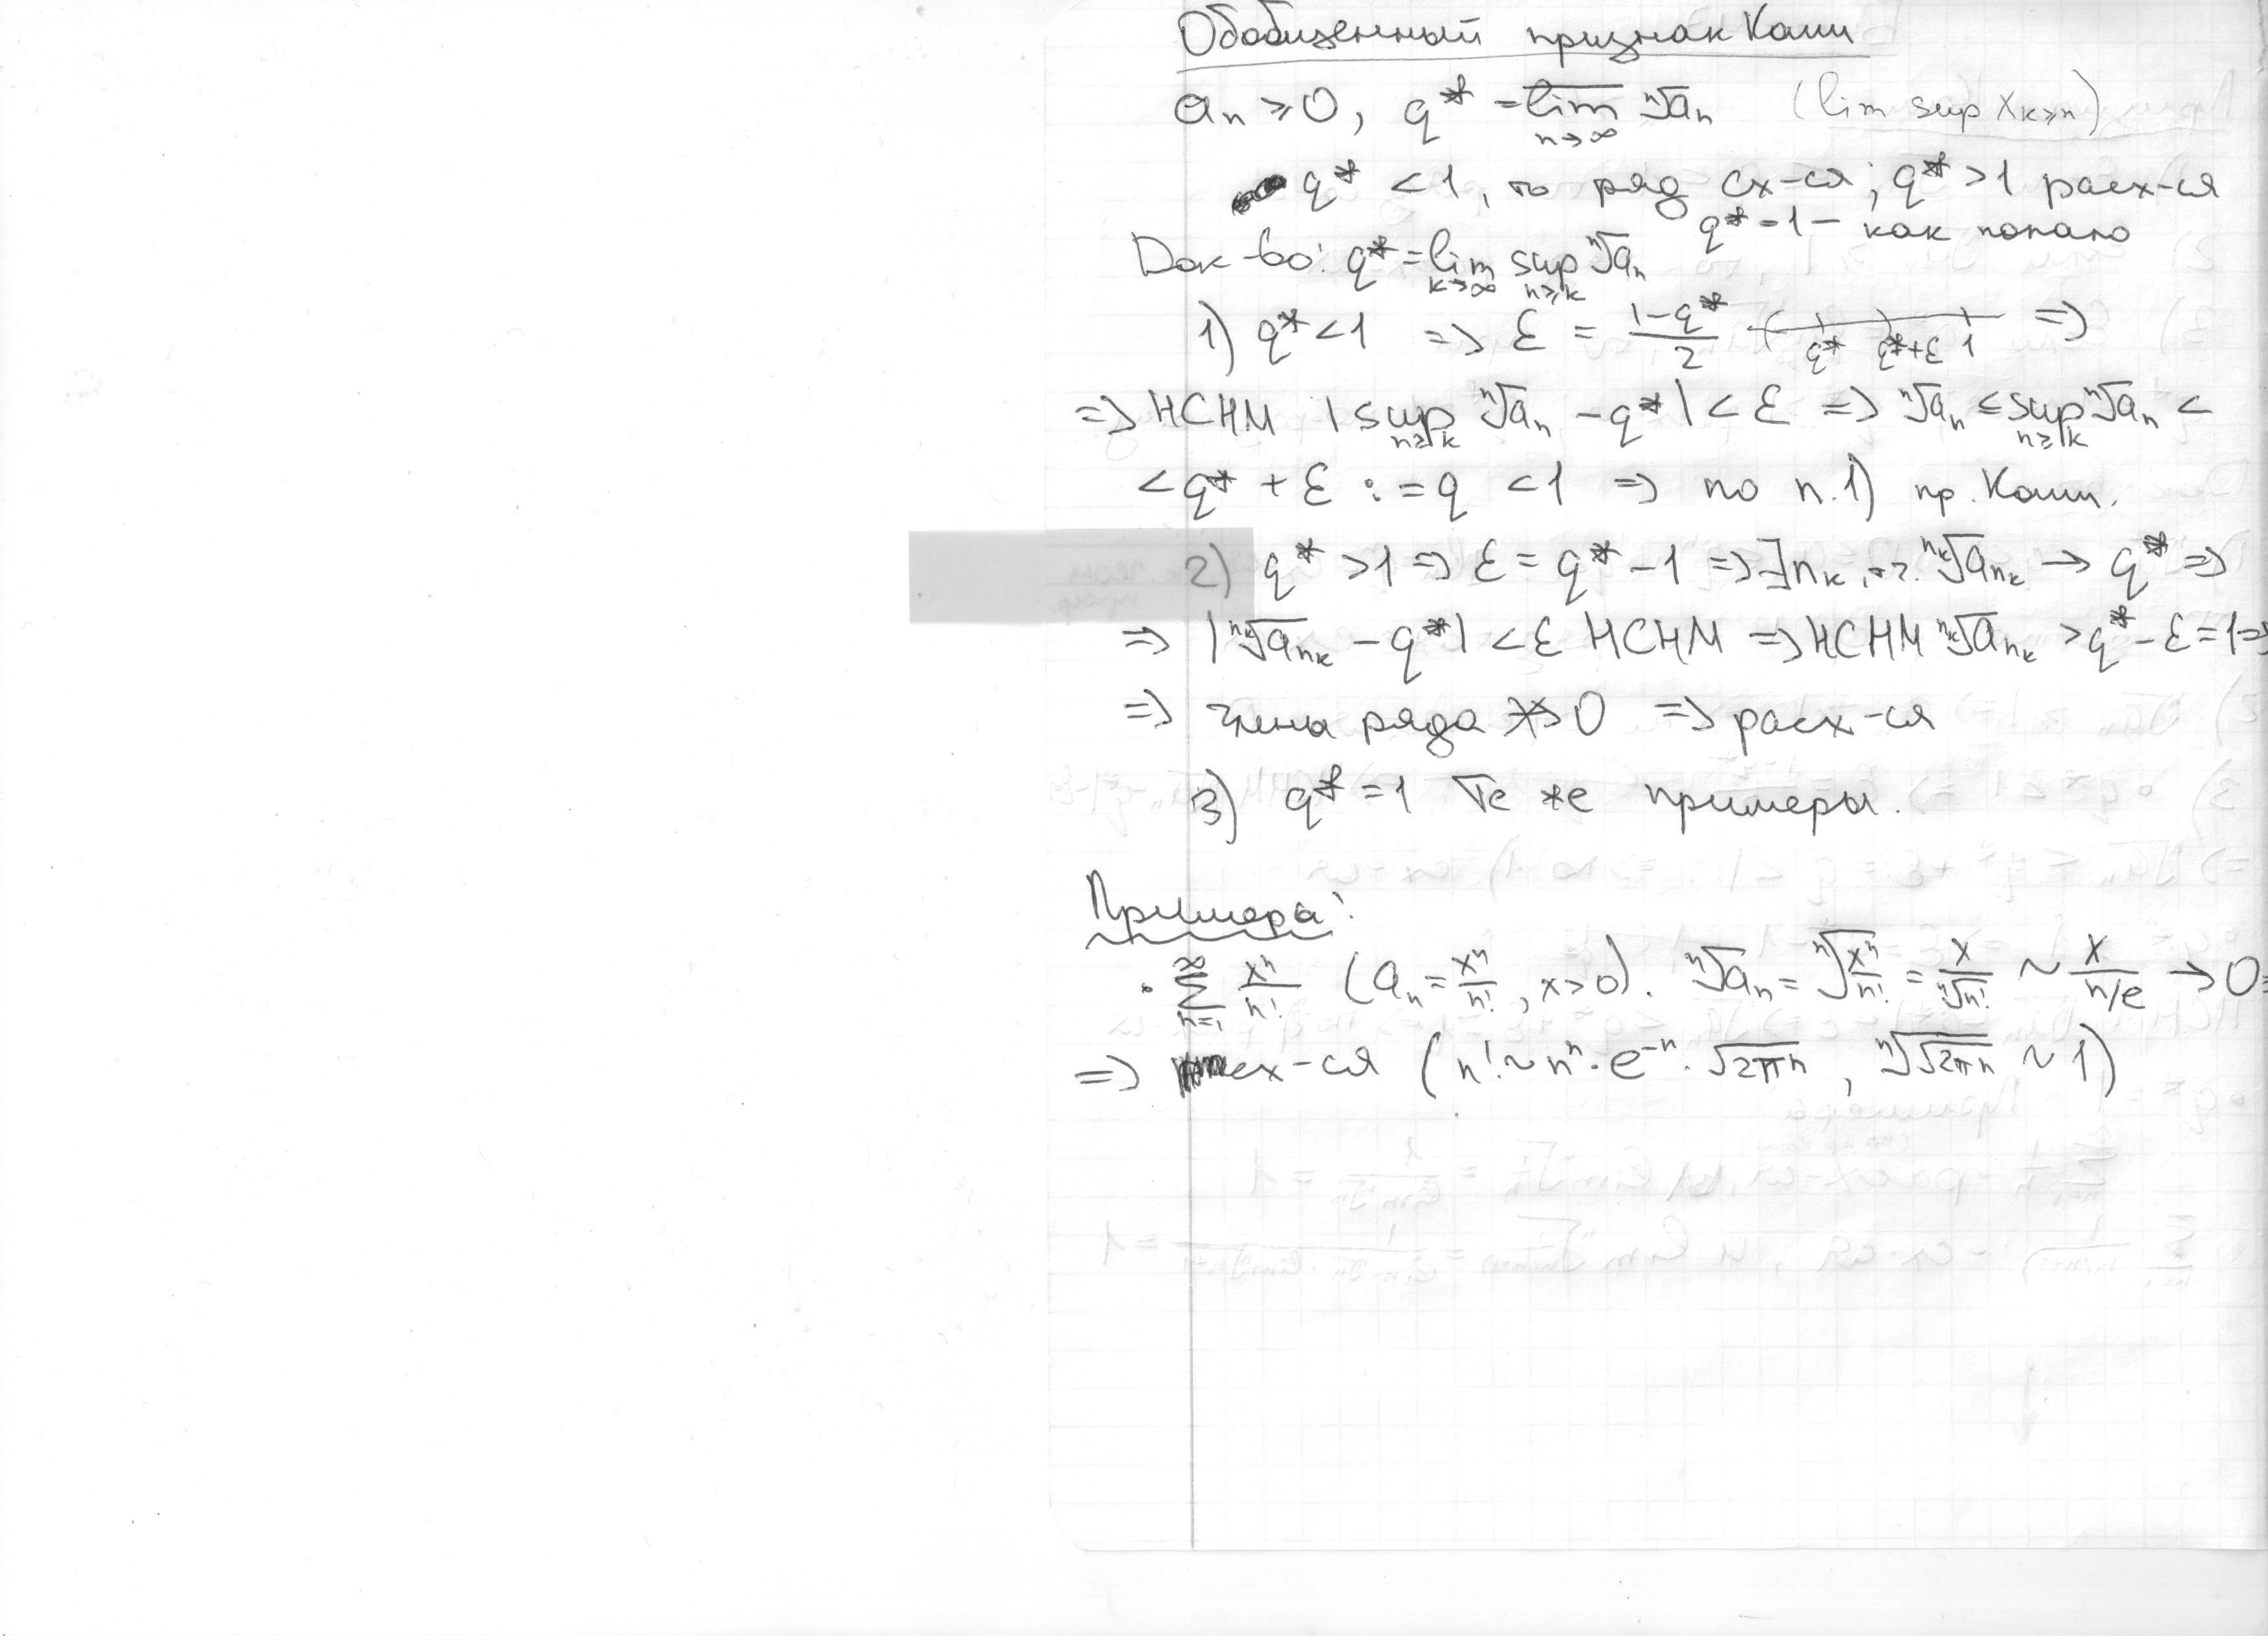 Обобщенный признак Коши
aₙ ≥ 0, q* = \overline{lim}_{n→∞} ⁿ√aₙ (lim sup x_{k≥n})
q* < 1, то ряд сх-ся; q* > 1 расх-ся
q* = 1 – как попало
Док-во: q* = lim_{k→∞} sup_{n≥k} ⁿ√aₙ
1) q* < 1 => ε = \frac{1-q*}{2} ( q* ) q*+ε 1 =>
=> НСНМ | sup_{n≥k} ⁿ√aₙ - q* | < ε => ⁿ√aₙ ≤ sup_{n≥k} ⁿ√aₙ <
< q* + ε := q < 1 => по п.1) пр. Коши.
2) q* > 1 => ε = q* - 1 => ∃ n_k, т.ч. ^{n_k}√a_{n_k} → q* =>
=> | ^{n_k}√a_{n_k} - q* | < ε НСНМ => НСНМ ^{n_k}√a_{n_k} > q* - ε = 1 =>
=> члены ряда ↛ 0 => расх-ся
3) q* = 1 Те же примеры.
Примеры:
• \sum_{n=1}^{∞} \frac{xⁿ}{n!} (aₙ = \frac{xⁿ}{n!}, x > 0). ⁿ√aₙ = ⁿ√{\frac{xⁿ}{n!}} = \frac{x}{ⁿ√{n!}} ~ \frac{x}{n/e} → 0 =
=> сх-ся (n! ~ nⁿ · e⁻ⁿ · √{2πn}, ⁿ√{√{2πn}} ~ 1)